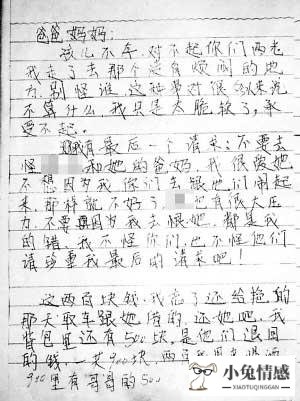 爸爸妈妈:
孩儿不孝,对不起你们两老
我走了去那个没有烦恼的地
方,别怪谁,这种事对很多人来说
不算什么,我只是太脆弱了,承
受不起。
我有最后一个请求:不要去
怪 和她的爸妈,我很爱她,
不想因为我你们去跟他们闹起
来,那样就不好了, 已有很大压
力,不要再因为我去恨她,都是我
的错,我不怪你们,也不怪他们
请尊重我最后的请求吧!
这两百块钱,我忘了还给 的
那天取车跟她借的,还她吧,我
背包里还有500块,是他们退回
的钱一共900块,两
900里有哥哥的500
小兔情感
XIAOTUQINGGAN